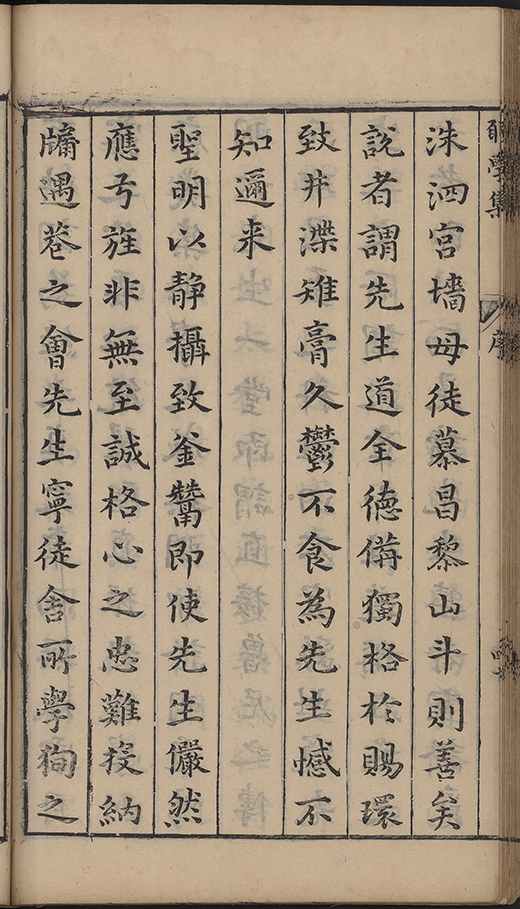 學集 序
洙泗宮墻毋徒慕昌黎山斗則善矣
說者謂先生道全徳備獨格於賜環
致井渫雉膏久鬱不食為先生憾不
知邇来
聖明以靜攝致釜鬵即使先生儼然
應弓旌非無至誠格心之忠難投納
牖遇巷之會先生寧徒舍所學狥之